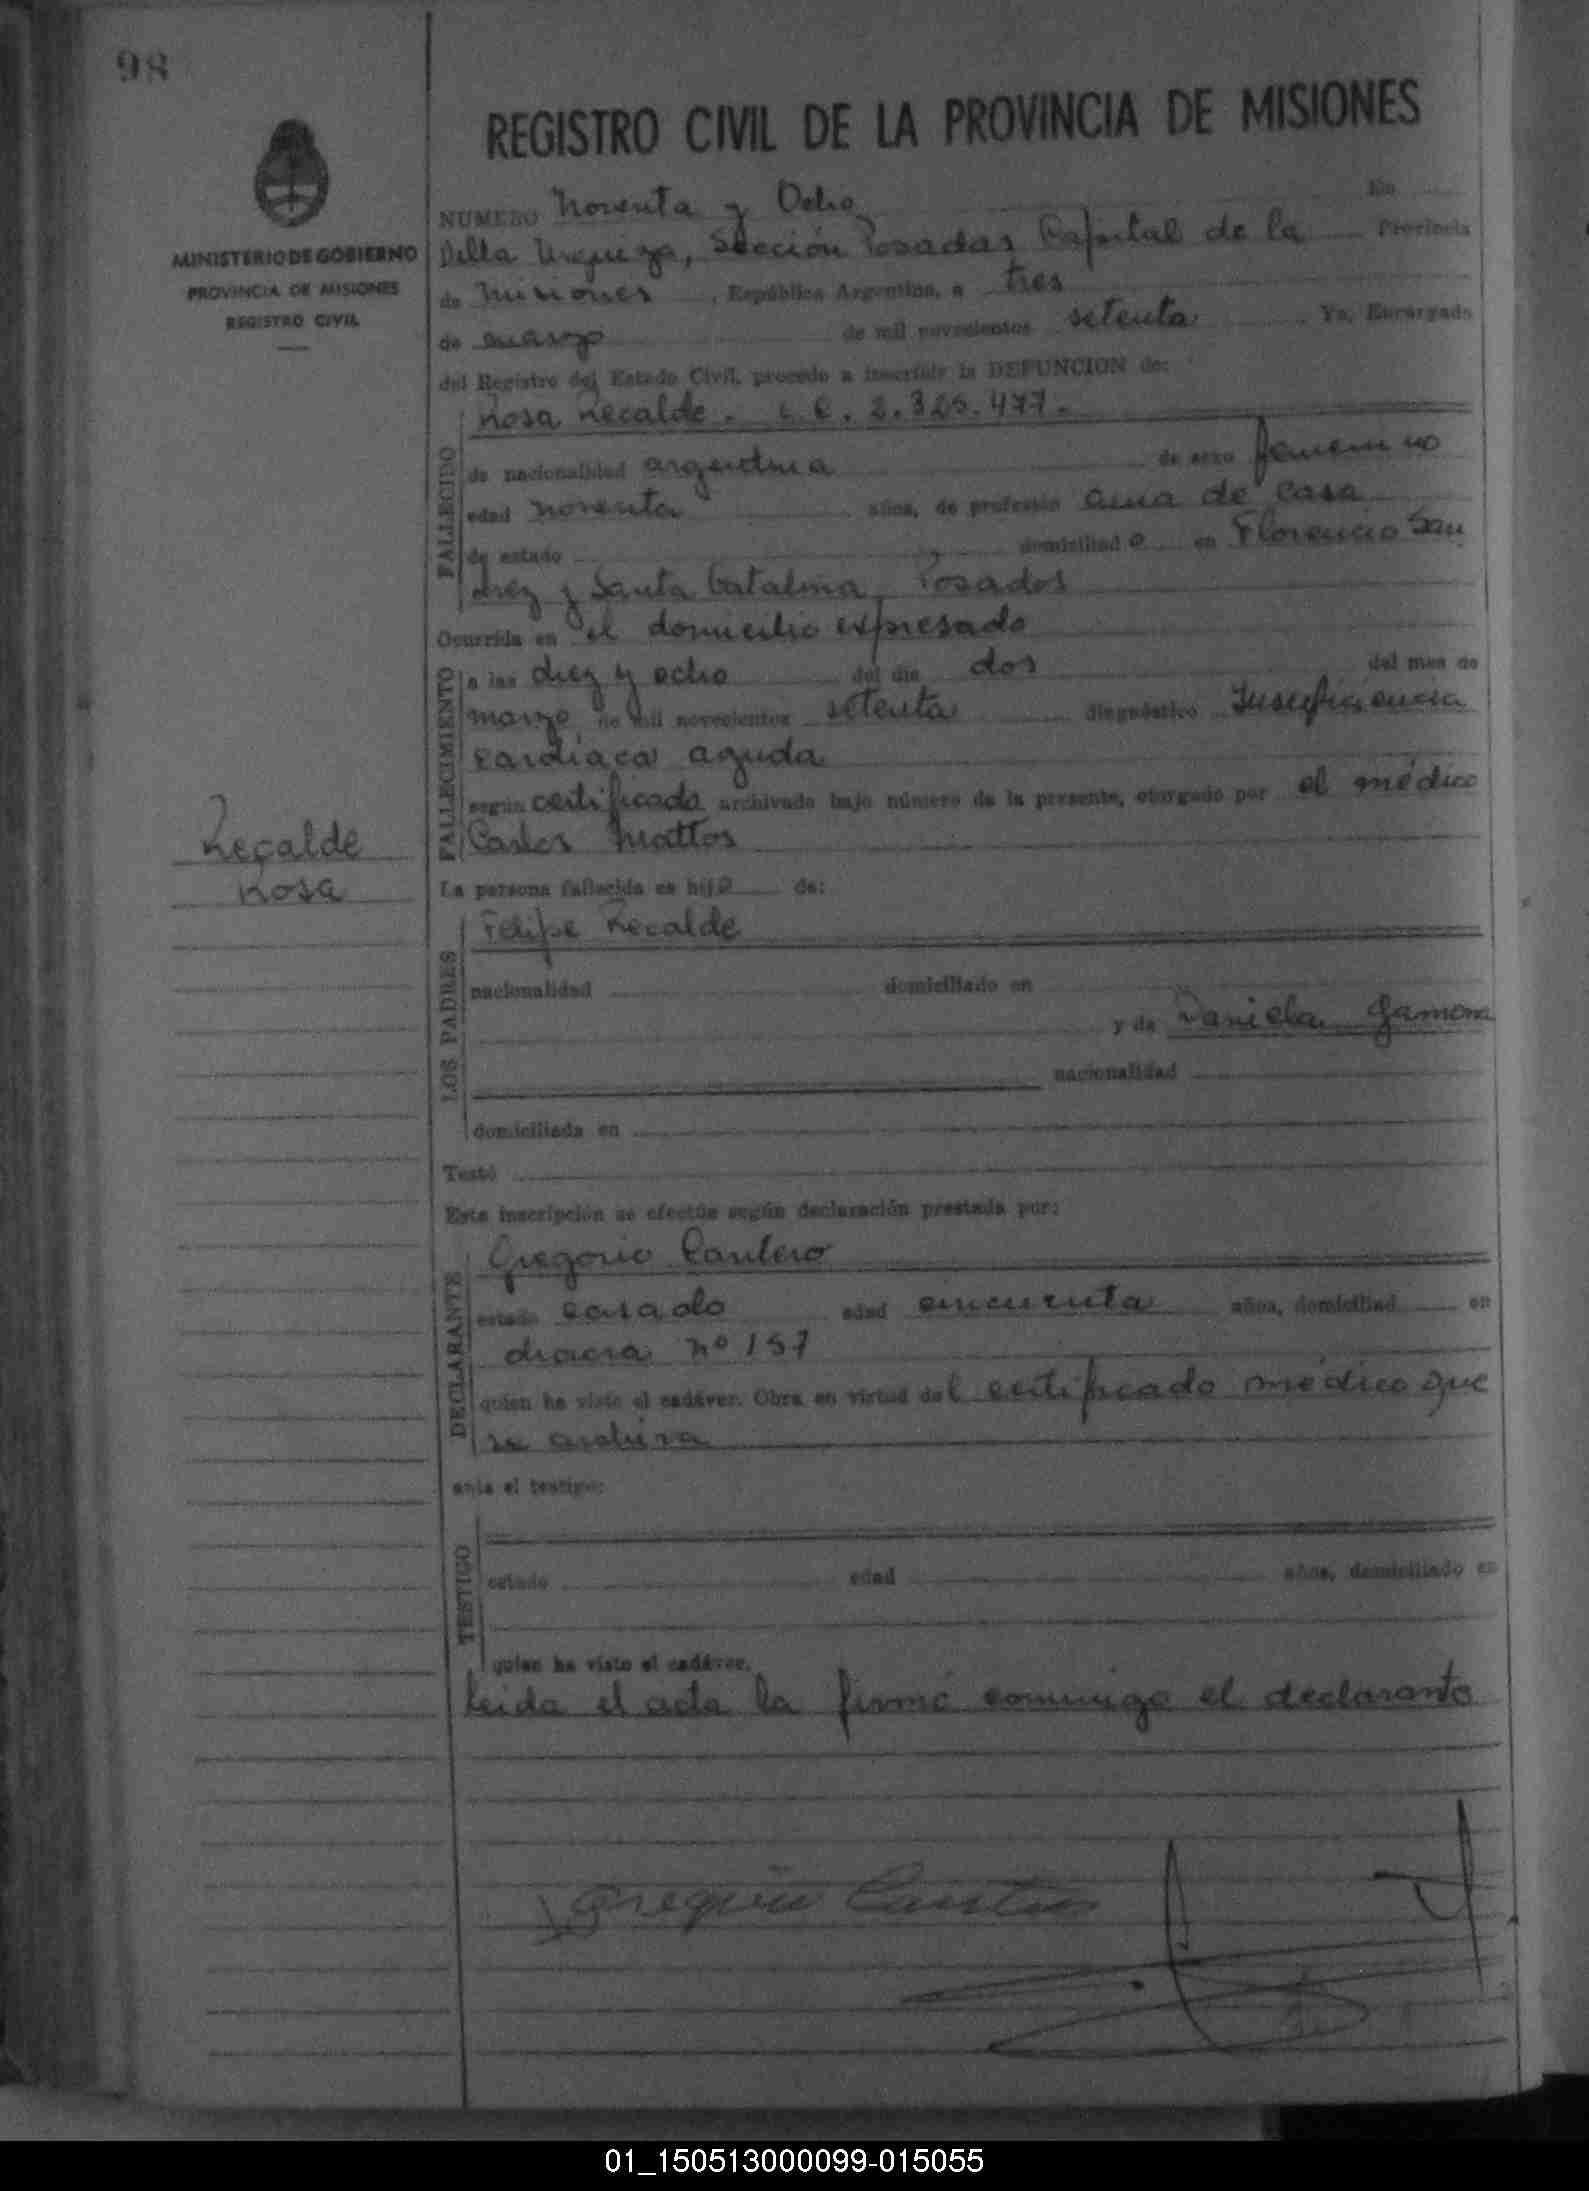 98
REGISTRO CIVIL DE LA PROVINCIA DE MISIONES
MINISTERIO DE GOBIERNO
PROVINCIA DE MISIONES
REGISTRO CIVIL
NUMERO Noventa y Ocho En
Villa Urquiza, Sección Posadas Capital de la Provincia
de Misiones, República Argentina, a tres
de marzo de mil novecientos setenta Yo, Encargado
del Registro del Estado Civil, procedo a inscribir la DEFUNCION de:
FALLECIDO
Rosa Recalde. 2.325.477.
de nacionalidad argentina de sexo femenino
edad noventa años, de profesión ama de casa
de estado domiciliad a en Florencio San
chez y Santa Catalina Posadas
Ocurrida en el domicilio expresado
FALLECIMIENTO
a las diez y ocho del día dos del mes de
marzo de mil novecientos setenta diagnóstico Insuficiencia
cardiaca aguda
según certificado archivado bajo número de la presente, otorgado por el médico
Carlos Mattos
Recalde
Rosa
La persona fallecida es hija de:
LOS PADRES
Felipe Recalde
nacionalidad domiciliado en
y de Daniela Gamona
nacionalidad
domiciliada en
Testó
Esta inscripción se efectúa según declaración prestada por:
DECLARANTE
Gregorio Cantero
estado casado edad cincuenta años, domiciliad en
chacra nº 157
quien ha visto el cadáver. Obra en virtud del certificado médico que
se archiva
ante el testigo:
TESTIGO
estado edad años, domiciliado en
quien ha visto el cadáver.
Leida el acta la firmó conmigo el declarante
01_150513000099-015055